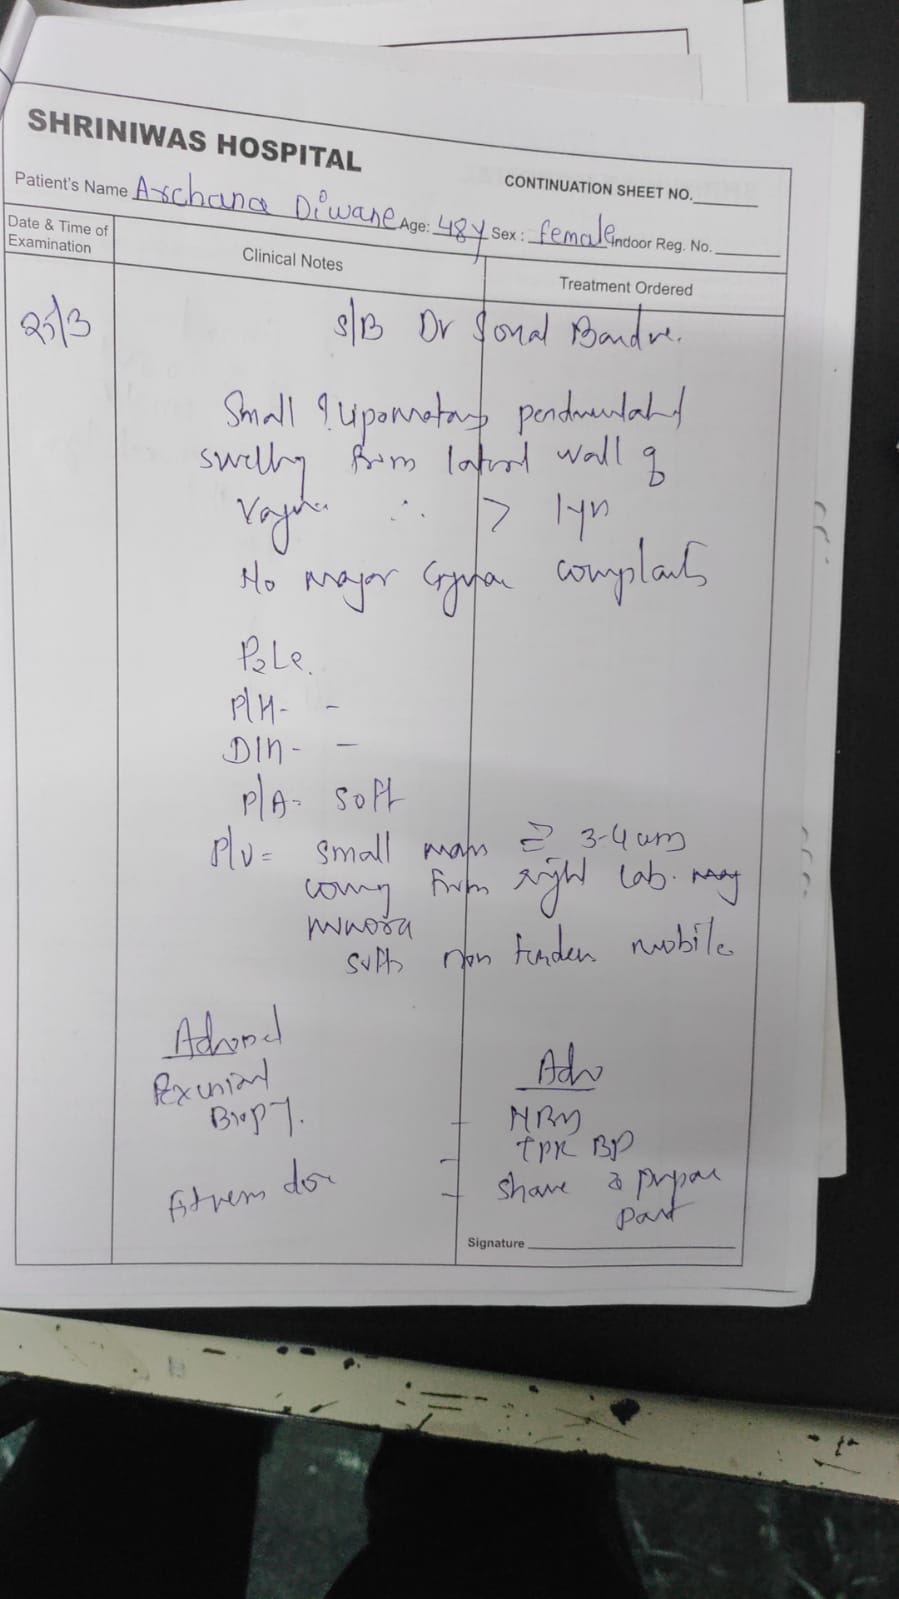 SHRINIWAS HOSPITAL
CONTINUATION SHEET NO.
Patient's Name Archana Diwane Age: 48y Sex: female Indoor Reg. No.
Date & Time of Examination
Clinical Notes
Treatment Ordered
25/3
S/B Dr Sonal
Small ? lipomatous
swelling from lateral wall of
Vagina ∴ > 1yr
No major Gynae complaints
P2L2.
P/H- -
-
P/A- soft
P/V= small mass 3-4 cms
coming from right lab.
minora
soft non tender mobile
Advised
Biopsy.
Adv
- NBM
- TPR BP
- part
Signature